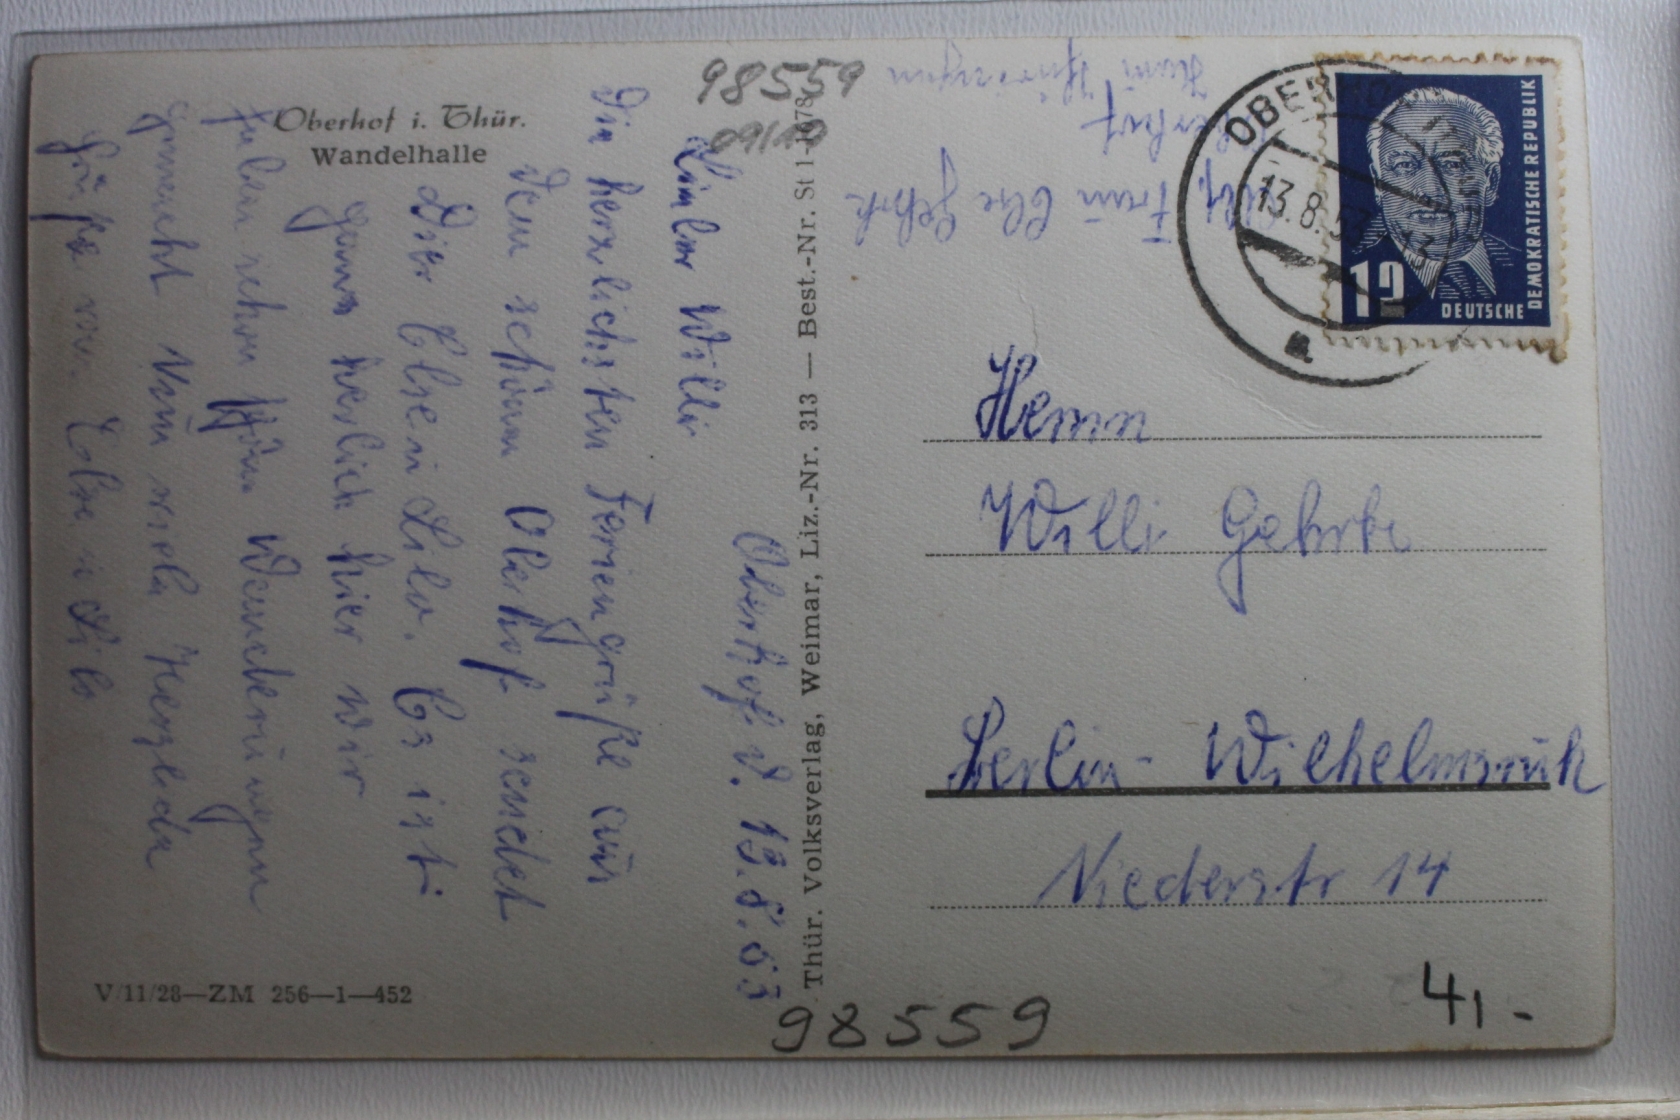 Oberhof i. Thür.
Wandelhalle
98559
09/10
Oberhof. d. 13.8.53
Lieber Willi
Die herzlichsten Feriengrüße aus
dem schönen Oberhof sendet
Dir Else u Lilo. Es ist
ganz herlich hier wir
haben schon schöne Wanderungen
gemacht Nun viele Herzliche
Grüße von Else u Lilo
Thür. Volksverlag, Weimar, Liz.-Nr. 313 — Best.-Nr. St 1-1078
V/11/28—ZM 256—1—452
Frau Else Gehrke
Oberhof
OBERHOF
13.8.53
12
DEUTSCHE
DEMOKRATISCHE REPUBLIK
Herrn
Willi Gehrke
Berlin-Wilhelmsruh
Niederstr 14
4,-
98559